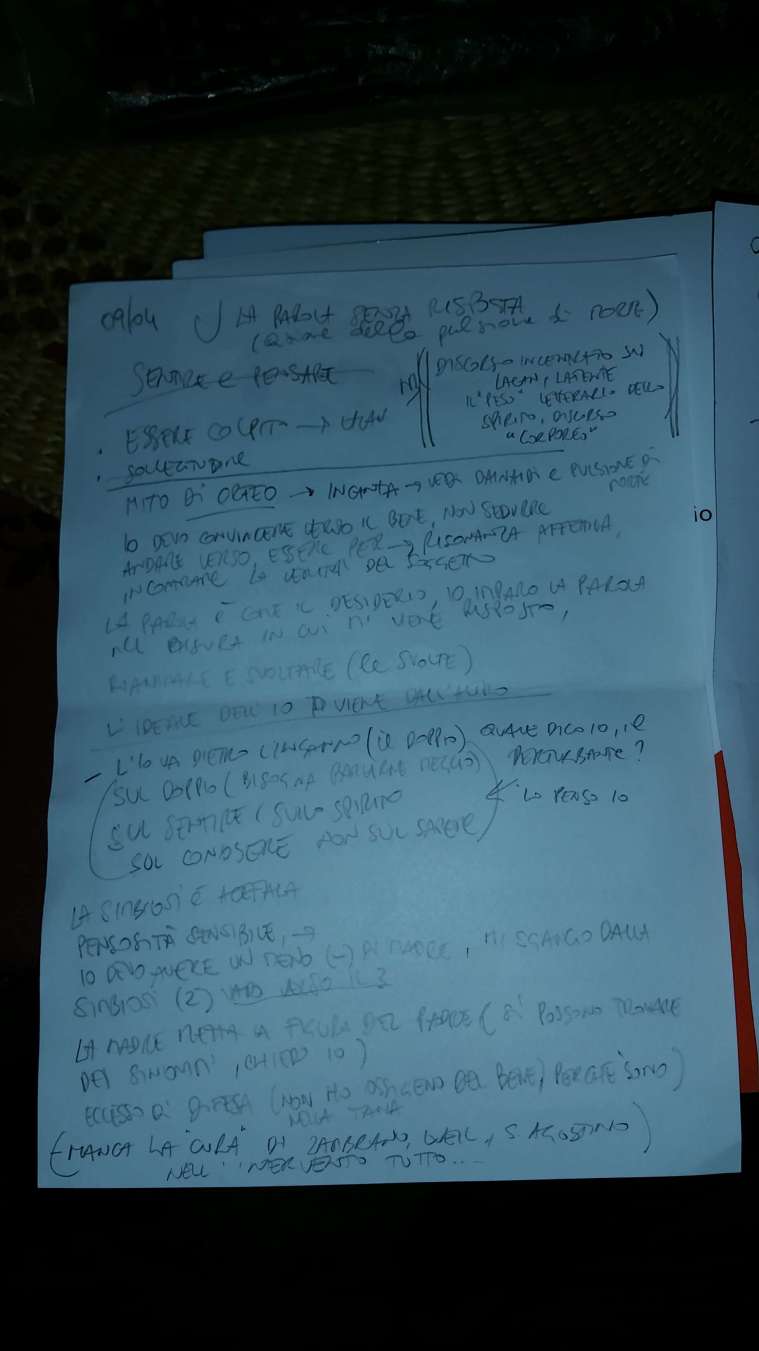 09/04 LA PAROLA SENZA RISPOSTA
(Amore della pulsione di MORTE)
SENTIRE e PENSARE
DISCORSO INCENTRATO SU
LACAN, LATENTE
IL "PESO" LETTERARIO DELLO
SPIRITO, DISCORSO
"CORPOREO"
ESSERE COLPITO →
SOLLECITUDINE
MITO DI ORFEO → INCANTA → VEDI DANAIDI e PULSIONE DI
MORTE
IO DEVO CONVINCERE VERSO IL BENE, NON SEDURRE
ANDARE VERSO, ESSERE PER → RISONANZA AFFETTIVA,
INCONTRARE LA VERITÀ DEL SOGGETTO
LA PAROLA È COME IL DESIDERIO, IO IMPARO LA PAROLA
NELLA MISURA IN CUI MI VIENE RISPOSTO,
RIANNODARE E SVOLTARE (le SVOLTE)
L'IDEALE DELL'IO VIENE DALL'ALTRO
- L'IO VA DIETRO L'INGANNO (il DOPPIO), QUALE DICO IO, il
PERTURBANTE?
SUL DOPPIO (BISOGNA PARLARNE MEGLIO)
SUL SENTIRE (SULLO SPIRITO
← LO PENSO IO
SUL CONOSCERE NON SUL SAPERE)
LA SIMBIOSI È ACEFALA
PENSOSITÀ SENSIBILE, →
IO DEVO AVERE UN MENO (-) DI MADRE, MI SGANCIO DALLA
SIMBIOSI (2) VADO VERSO IL 3
LA MADRE METTA LA FIGURA DEL PADRE (SI POSSONO TROVARE
DEI SINONIMI, CHIEDO IO)
ECCESSO DI DIFESA (NON HO OSSIGENO DEL BENE, PERCHÉ SONO)
NELLA TANA
(MANCA LA "CURA" DI ZAMBRANO, WEIL, S AGOSTINO)
NELL'INTERVENTO TUTTO...
io